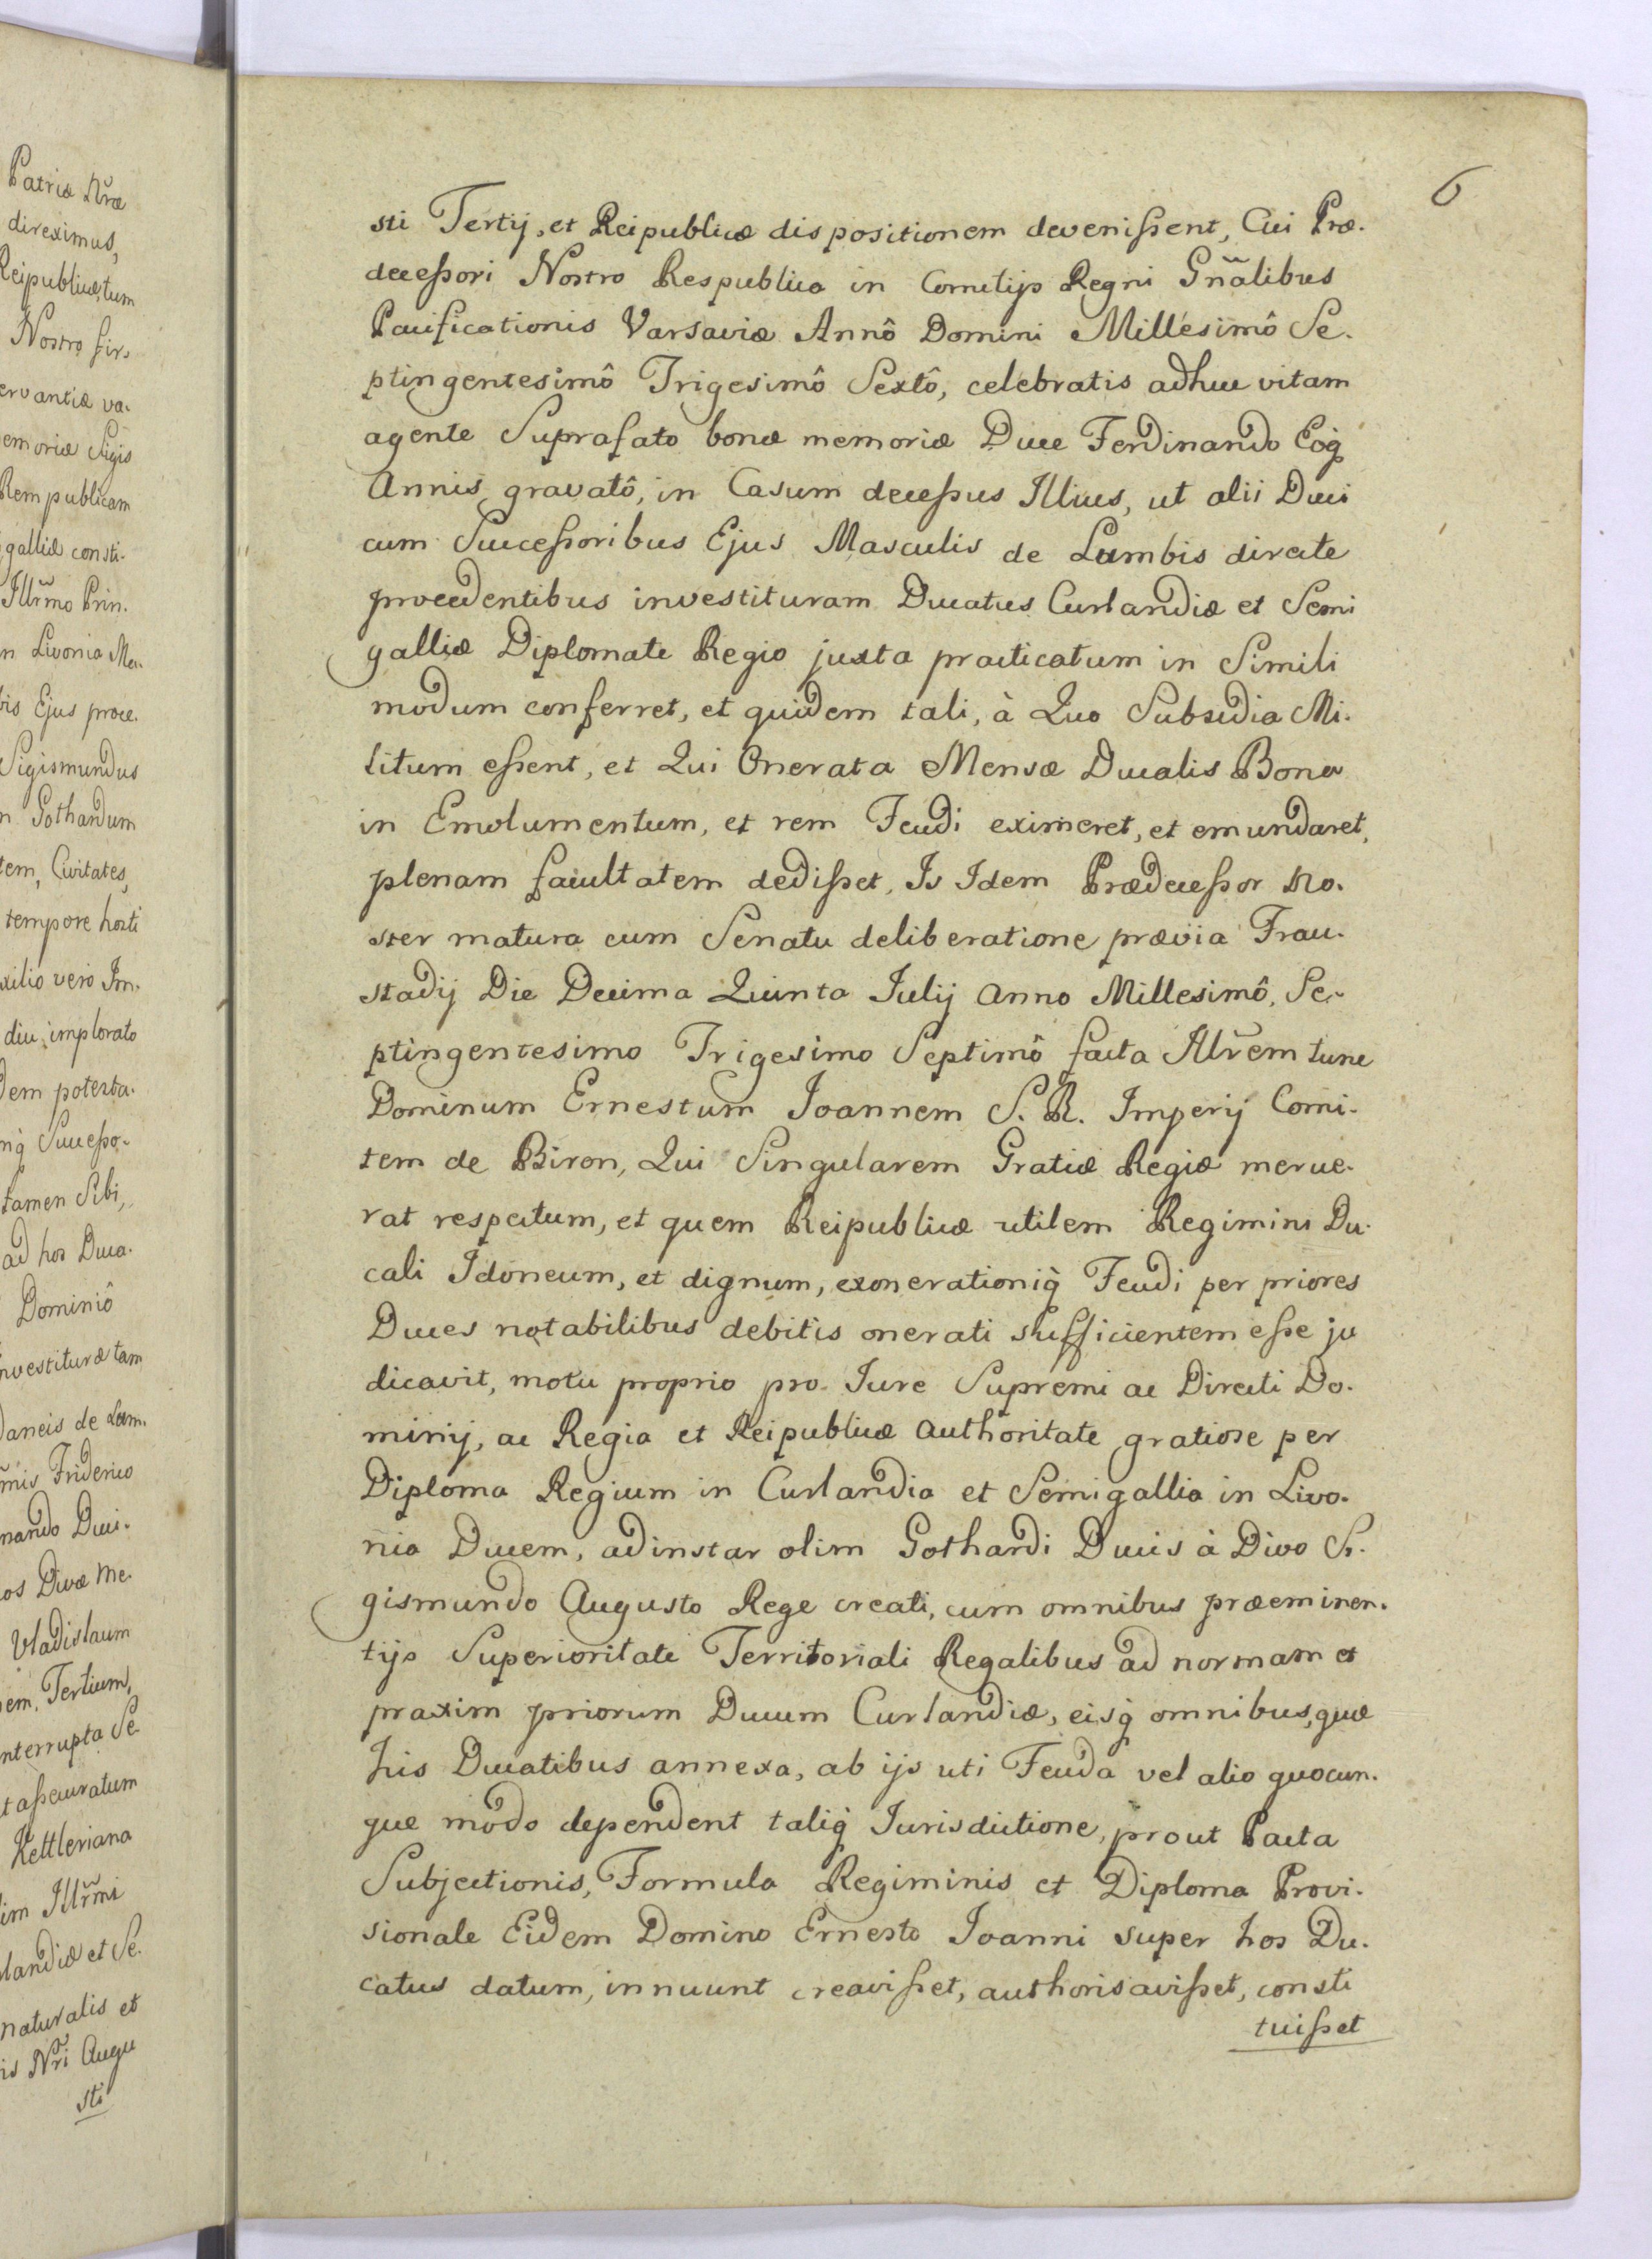 Patriæ Nr̃æ
direximus,
Reipublicæ, tum
Nostro fir-
ervantiæ va-
emoriæ Sigis
Rempublicam
galliæ consti-
Illr̃mo Prin-
n Livonia Ma-
bis Ejus proce-
Sigismundus
n Gothardum
tem, Civitates,
tempore hosti
xilio vero Im-
diu implorato
dem potesta-
nq̀ Succeßo-
tamen Sibi,
ad hos Duca-
Dominiô
nvestituræ tam
daneis de Lum-
mis Friderico
nando Duci-
os Divæ Me-
Vladislaum
em, Tertium,
nterrupta Se-
t aßecuratum
Kettleriana
im Illr̃mi
landiæ et Se-
naturalis et
is Nr̃i Augu
sti
6
sti Tertij, et Reipublicæ dispositionem devenißent, Cui Præ-
deceßori Nostro Respublica in Comitijs Regni Gñalibus
Pacificationis Varsaviæ Annô Domini Millesimô Se-
ptingentesimô Trigesimô Sextô, celebratis adhuc vitam
agente Suprafato bonæ memoriæ Duce Ferdinando Eoq̀
Annis gravatô, in Casum deceßus Illius, ut alii Duci
cum Succeßoribus Ejus Masculis de Lumbis directe
procedentibus investituram Ducatus Curlandiæ et Semi
galliæ Diplomate Regio juxta practicatum in Simili
modum conferret, et quidem tali, à Quo Subsidia Mi-
litum eßent, et Qui Onerata Mensæ Ducalis Bona
in Emolumentum, et rem Feudi eximeret, et emundaret,
plenam facultatem dedißet, Is Idem Prædeceßor No-
ster matura cum Senatu deliberatione prævia Frau-
stadij Die Decima Quinta Julij Anno Millesimô, Se-
ptingentesimo Trigesimo Septimô facta Illr̃em tunc
Dominum Ernestum Joannem S. R. Imperij Comi-
tem de Biron, Qui Singularem Gratiæ Regiæ merue-
rat respectum, et quem Reipublicæ utilem Regimini Du-
cali Idoneum, et dignum, exonerationiq̀ Feudi per priores
Duces notabilibus debitis onerati sufficientem eße ju
dicavit, motu proprio pro Jure Supremi ac Directi Do-
minij, ac Regia et Reipublicæ authoritate gratiose per
Diploma Regium in Curlandia et Semigallia in Livo-
nia Ducem, adinstar olim Gothardi Ducis à Divo Si-
gismundo Augusto Rege creati, cum omnibus præeminen-
tijs Superioritate Territoriali Regalibus ad normam et
praxim priorum Ducum Curlandiæ, eisq̀ omnibus, quæ
his Ducatibus annexa, ab ijs uti Feuda vel alio quocun-
que modo dependent taliq̀ Jurisdictione, prout Pacta
Subjectionis, Formula Regiminis et Diploma Provi-
sionale Eidem Domino Ernesto Joanni super hos Du-
catus datum, innuunt creavißet, authorisavißet, consti
tuißet